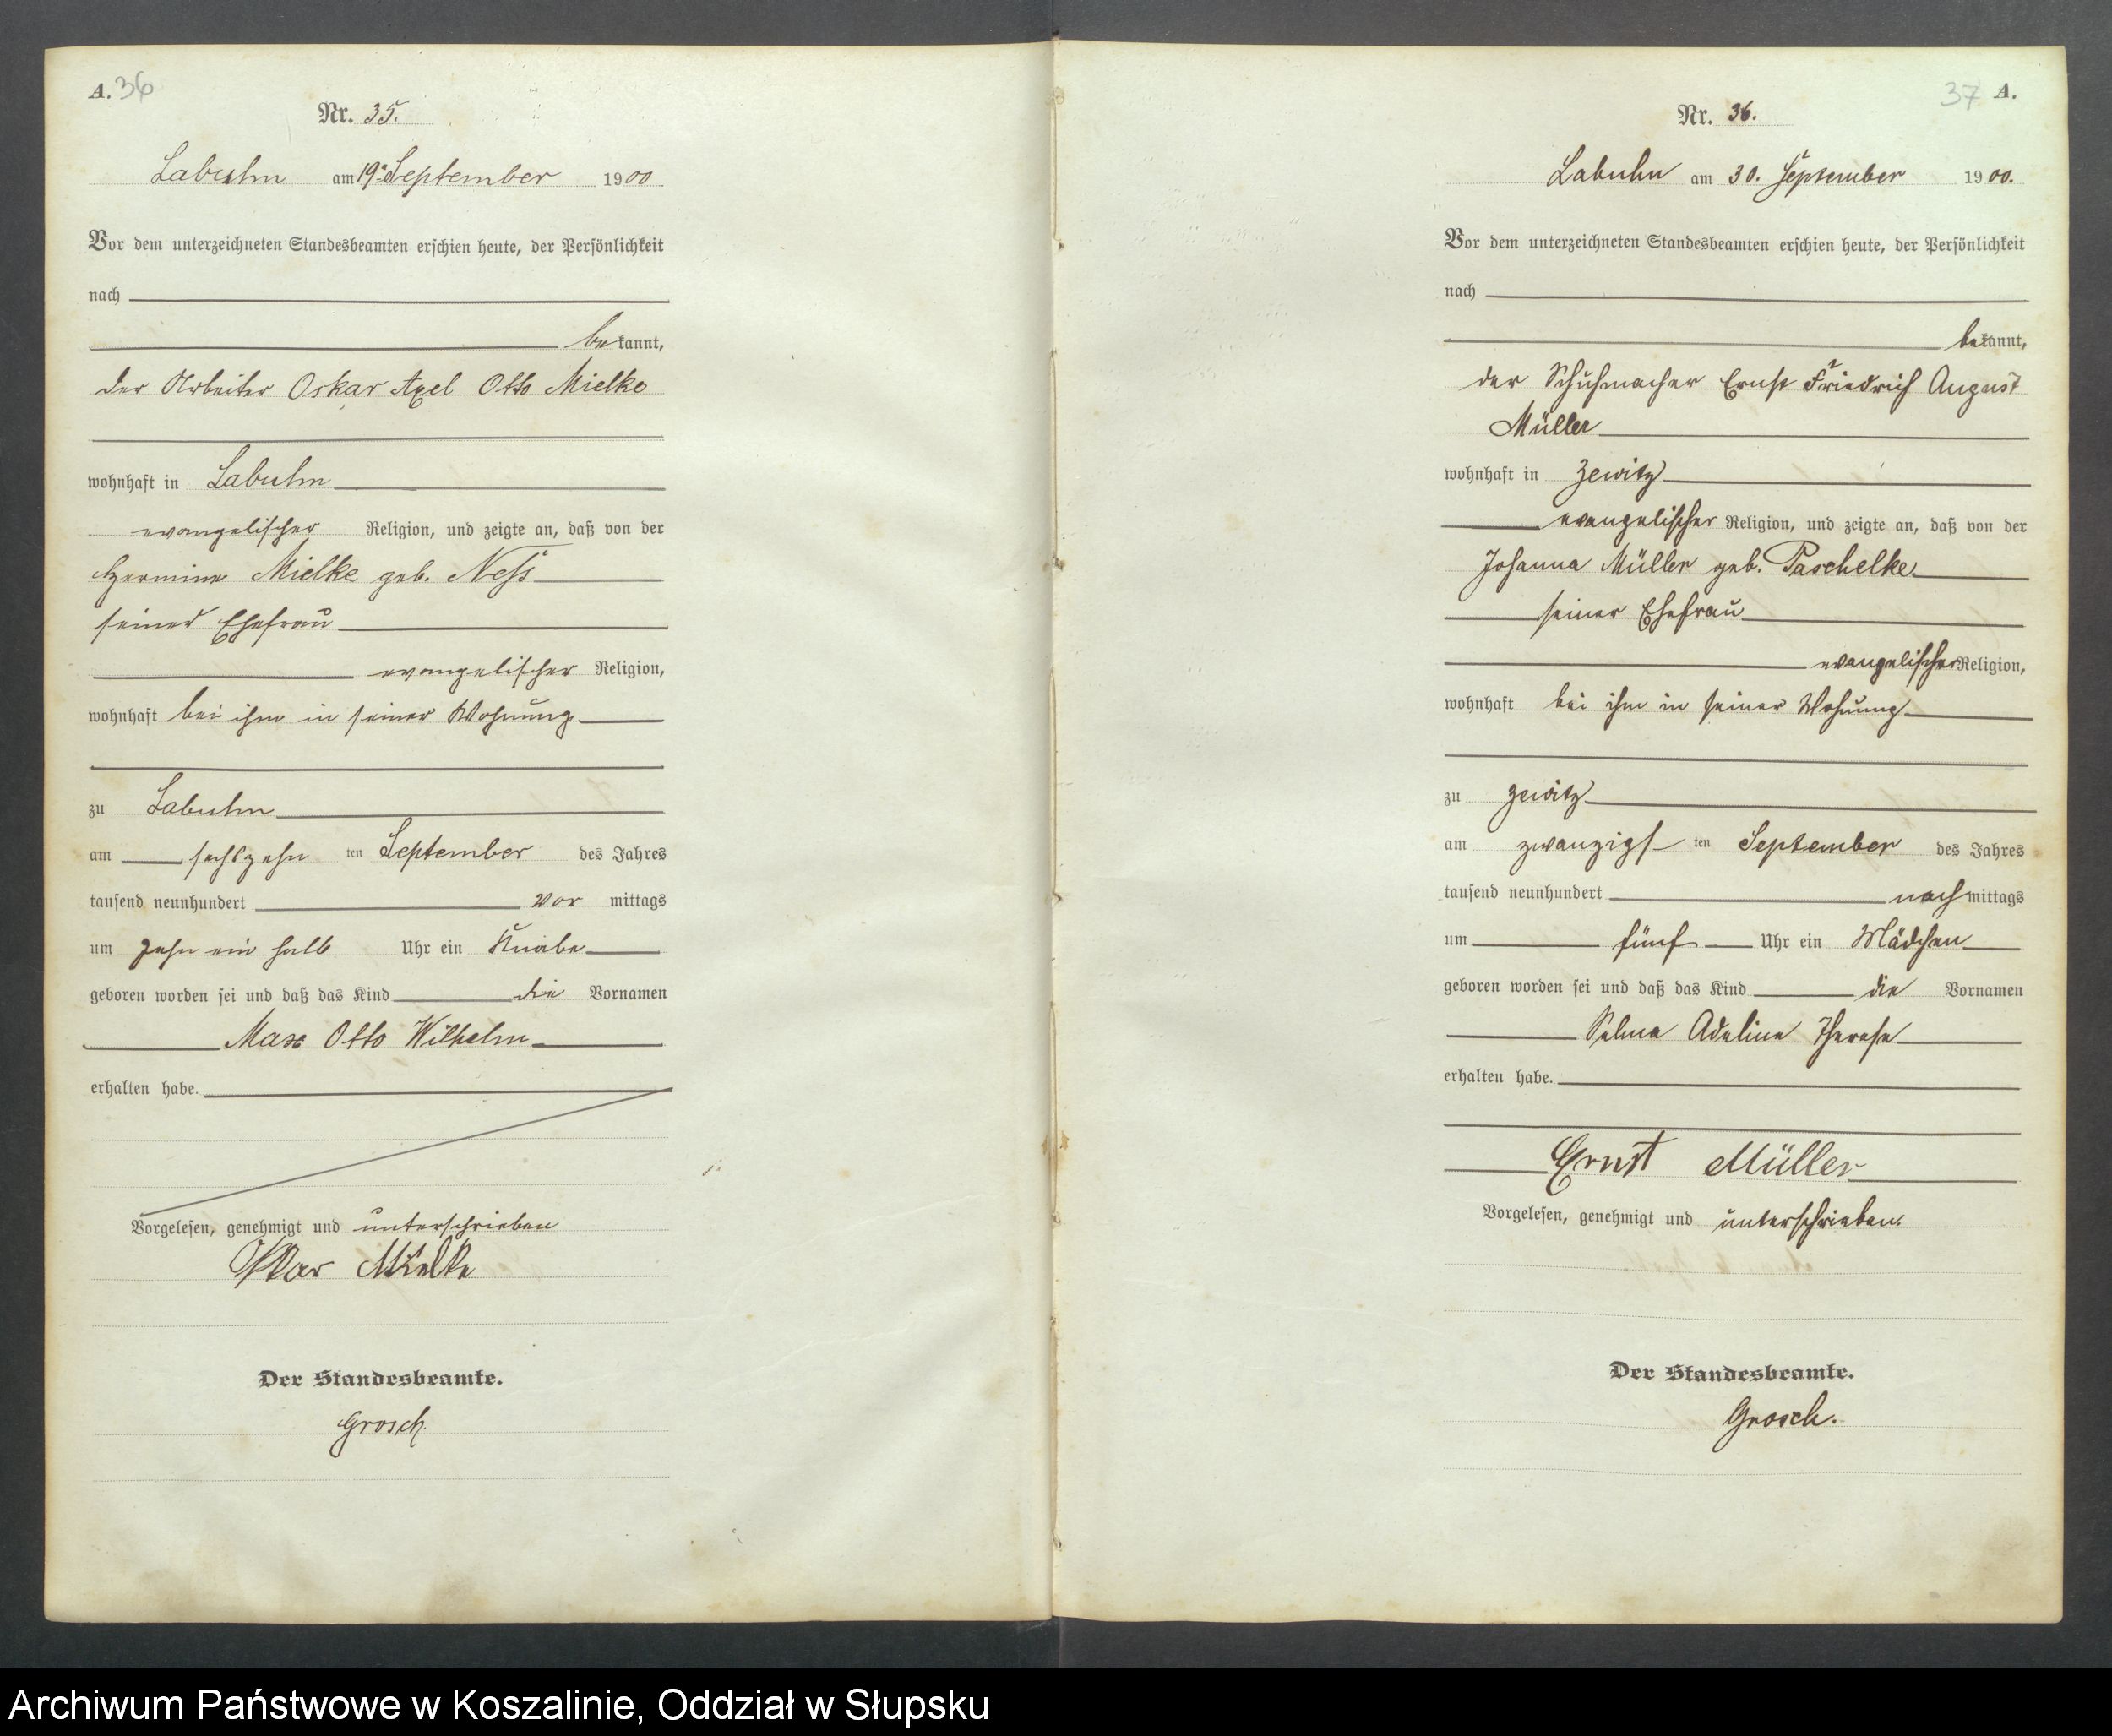 A. 36
Nr. 35.
Labuhn am 19. September 1900
Vor dem unterzeichneten Standesbeamten erschien heute, der Persönlichkeit
nach
bekannt,
der Arbeiter Oskar Axel Otto Mielke
wohnhaft in Labuhn
evangelischer Religion, und zeigte an, daß von der
Hermine Mielke geb. Neß
seiner Ehefrau
evangelischer Religion,
wohnhaft bei ihm in seiner Wohnung
zu Labuhn
am sechszehn ten September des Jahres
tausend neunhundert vor mittags
um zehn ein halb Uhr ein Knabe
geboren worden sei und daß das Kind die Vornamen
Max Otto Wilhelm
erhalten habe.
Vorgelesen, genehmigt und unterschrieben
Oskar Mielke
Der Standesbeamte.
Grosch.
37 A.
Nr. 36.
Labuhn am 30. September 1900.
Vor dem unterzeichneten Standesbeamten erschien heute, der Persönlichkeit
nach
bekannt,
der Schuhmacher Ernst Friedrich August
Müller
wohnhaft in Zewitz
evangelischer Religion, und zeigte an, daß von der
Johanna Müller geb. Paschelke
seiner Ehefrau
evangelischer Religion,
wohnhaft bei ihm in seiner Wohnung
zu Zewitz
am zwanzigs ten September des Jahres
tausend neunhundert nach mittags
um fünf Uhr ein Mädchen
geboren worden sei und daß das Kind die Vornamen
Selma Adeline Therese
erhalten habe.
Ernst Müller
Vorgelesen, genehmigt und unterschrieben.
Der Standesbeamte.
Grosch.
Archiwum Państwowe w Koszalinie, Oddział w Słupsku